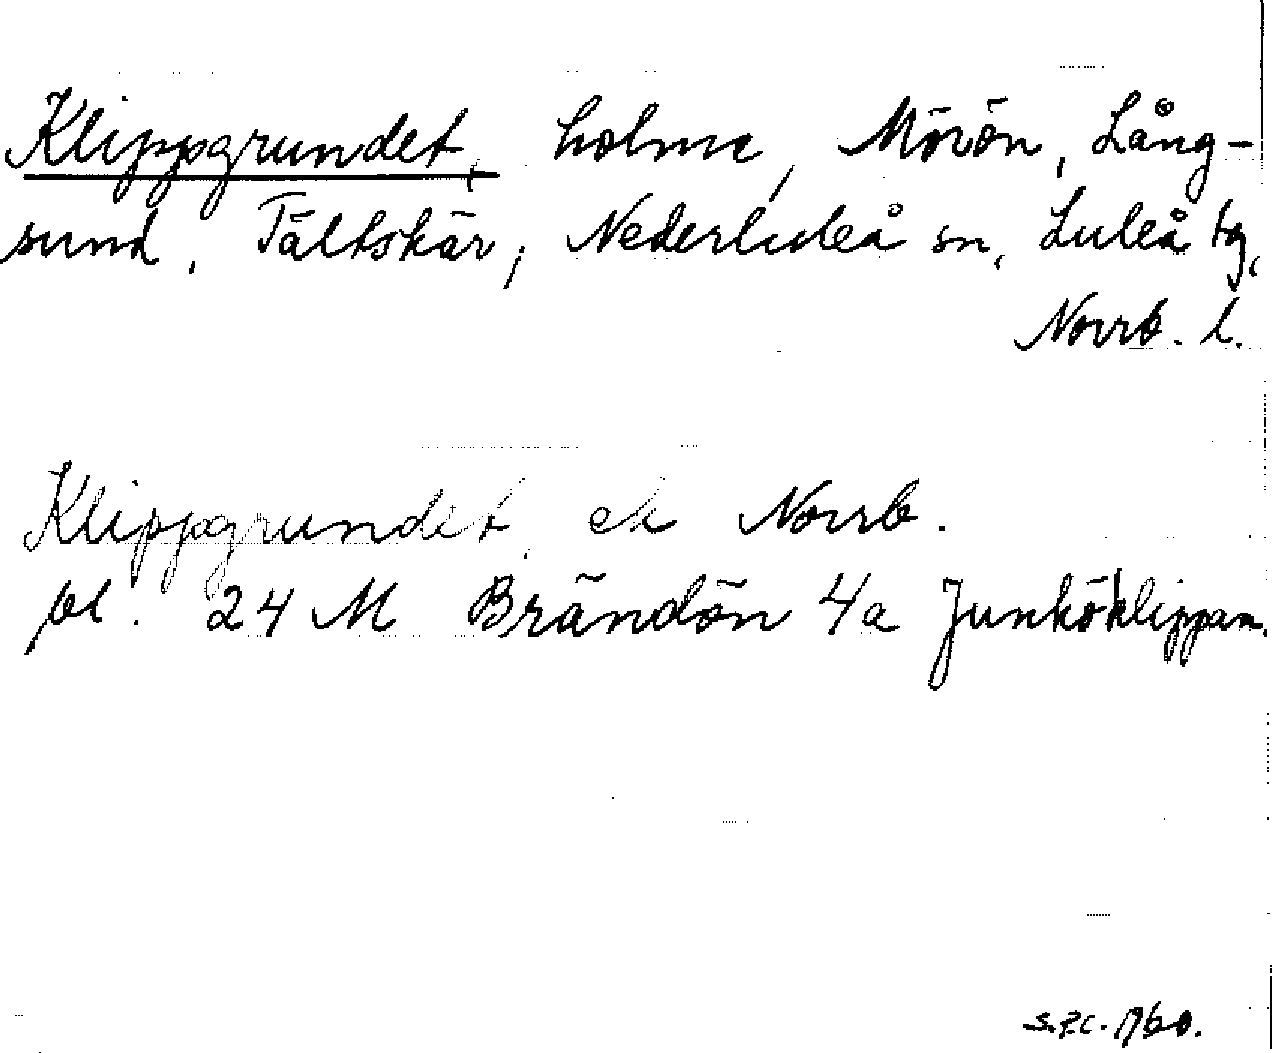 Klippgrundet, holme, Mörön, Lång-
sund, Tältskär, Nederluleå sn, Luleå tg,
Norrb. l.
Klippgrundet, ek Norrb.
bl. 24 M Brändön 4a Junköklippan.
1960.